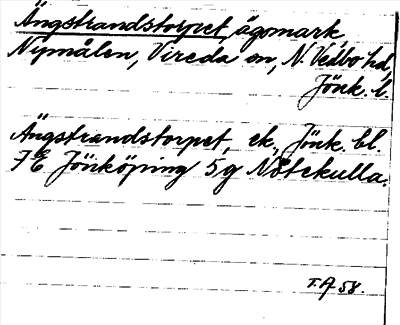 Ängstrandstorpet, ägomark
Nymålen, Vireda sn, N. Vedbo hd,
Jönk. l.
Ängstrandstorpet, ek, Jönk. bl.
7 E Jönköping 5 g Nötekulla.
T.A 58.